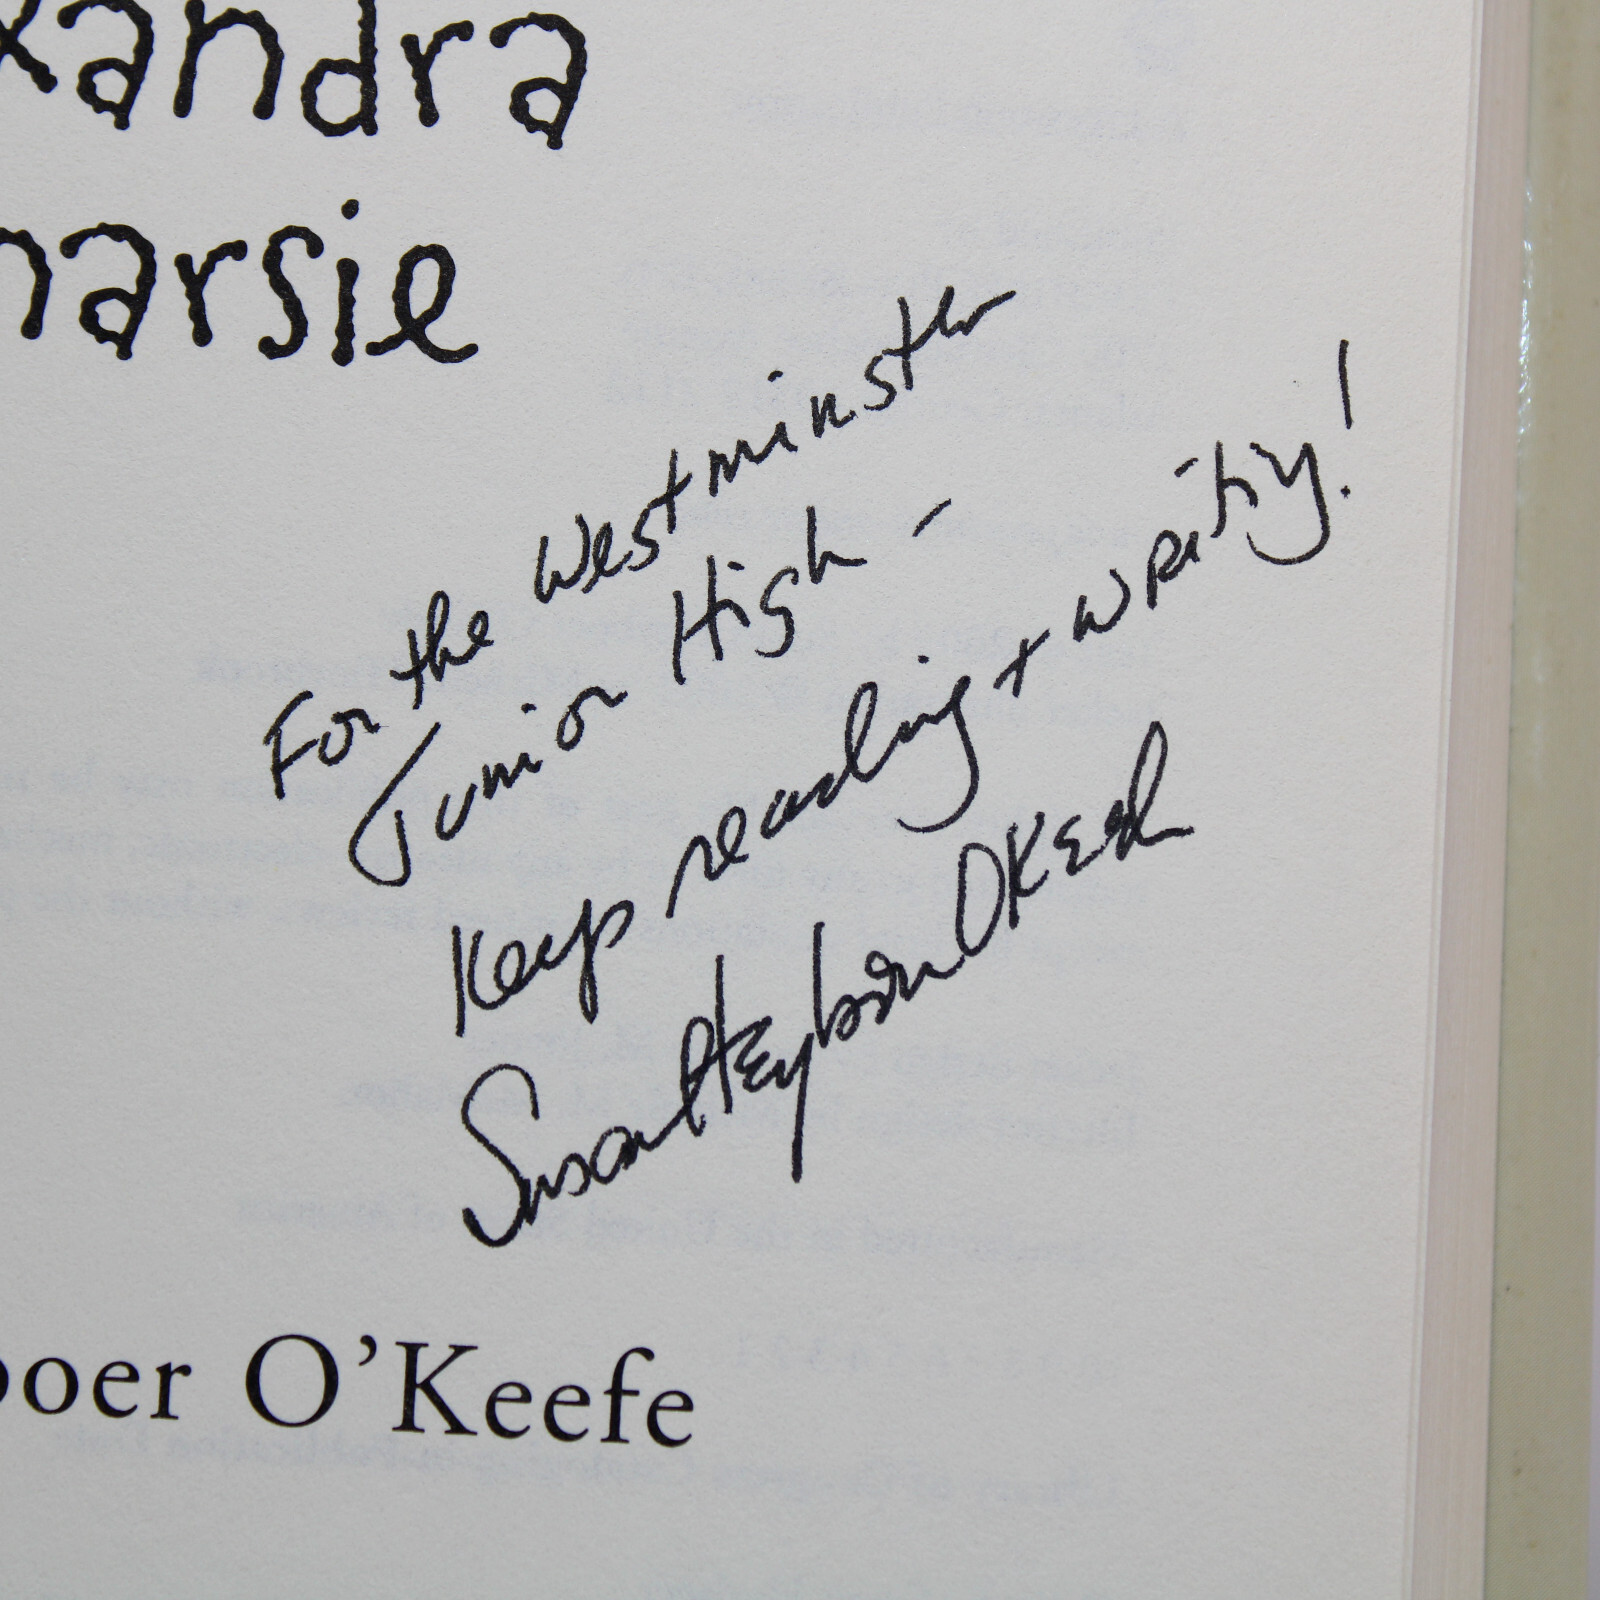 xandra
narsie
For the Westminster
Junior High -
Keep reading + writing!
Susan Heyboer O'Keefe
boer O'Keefe